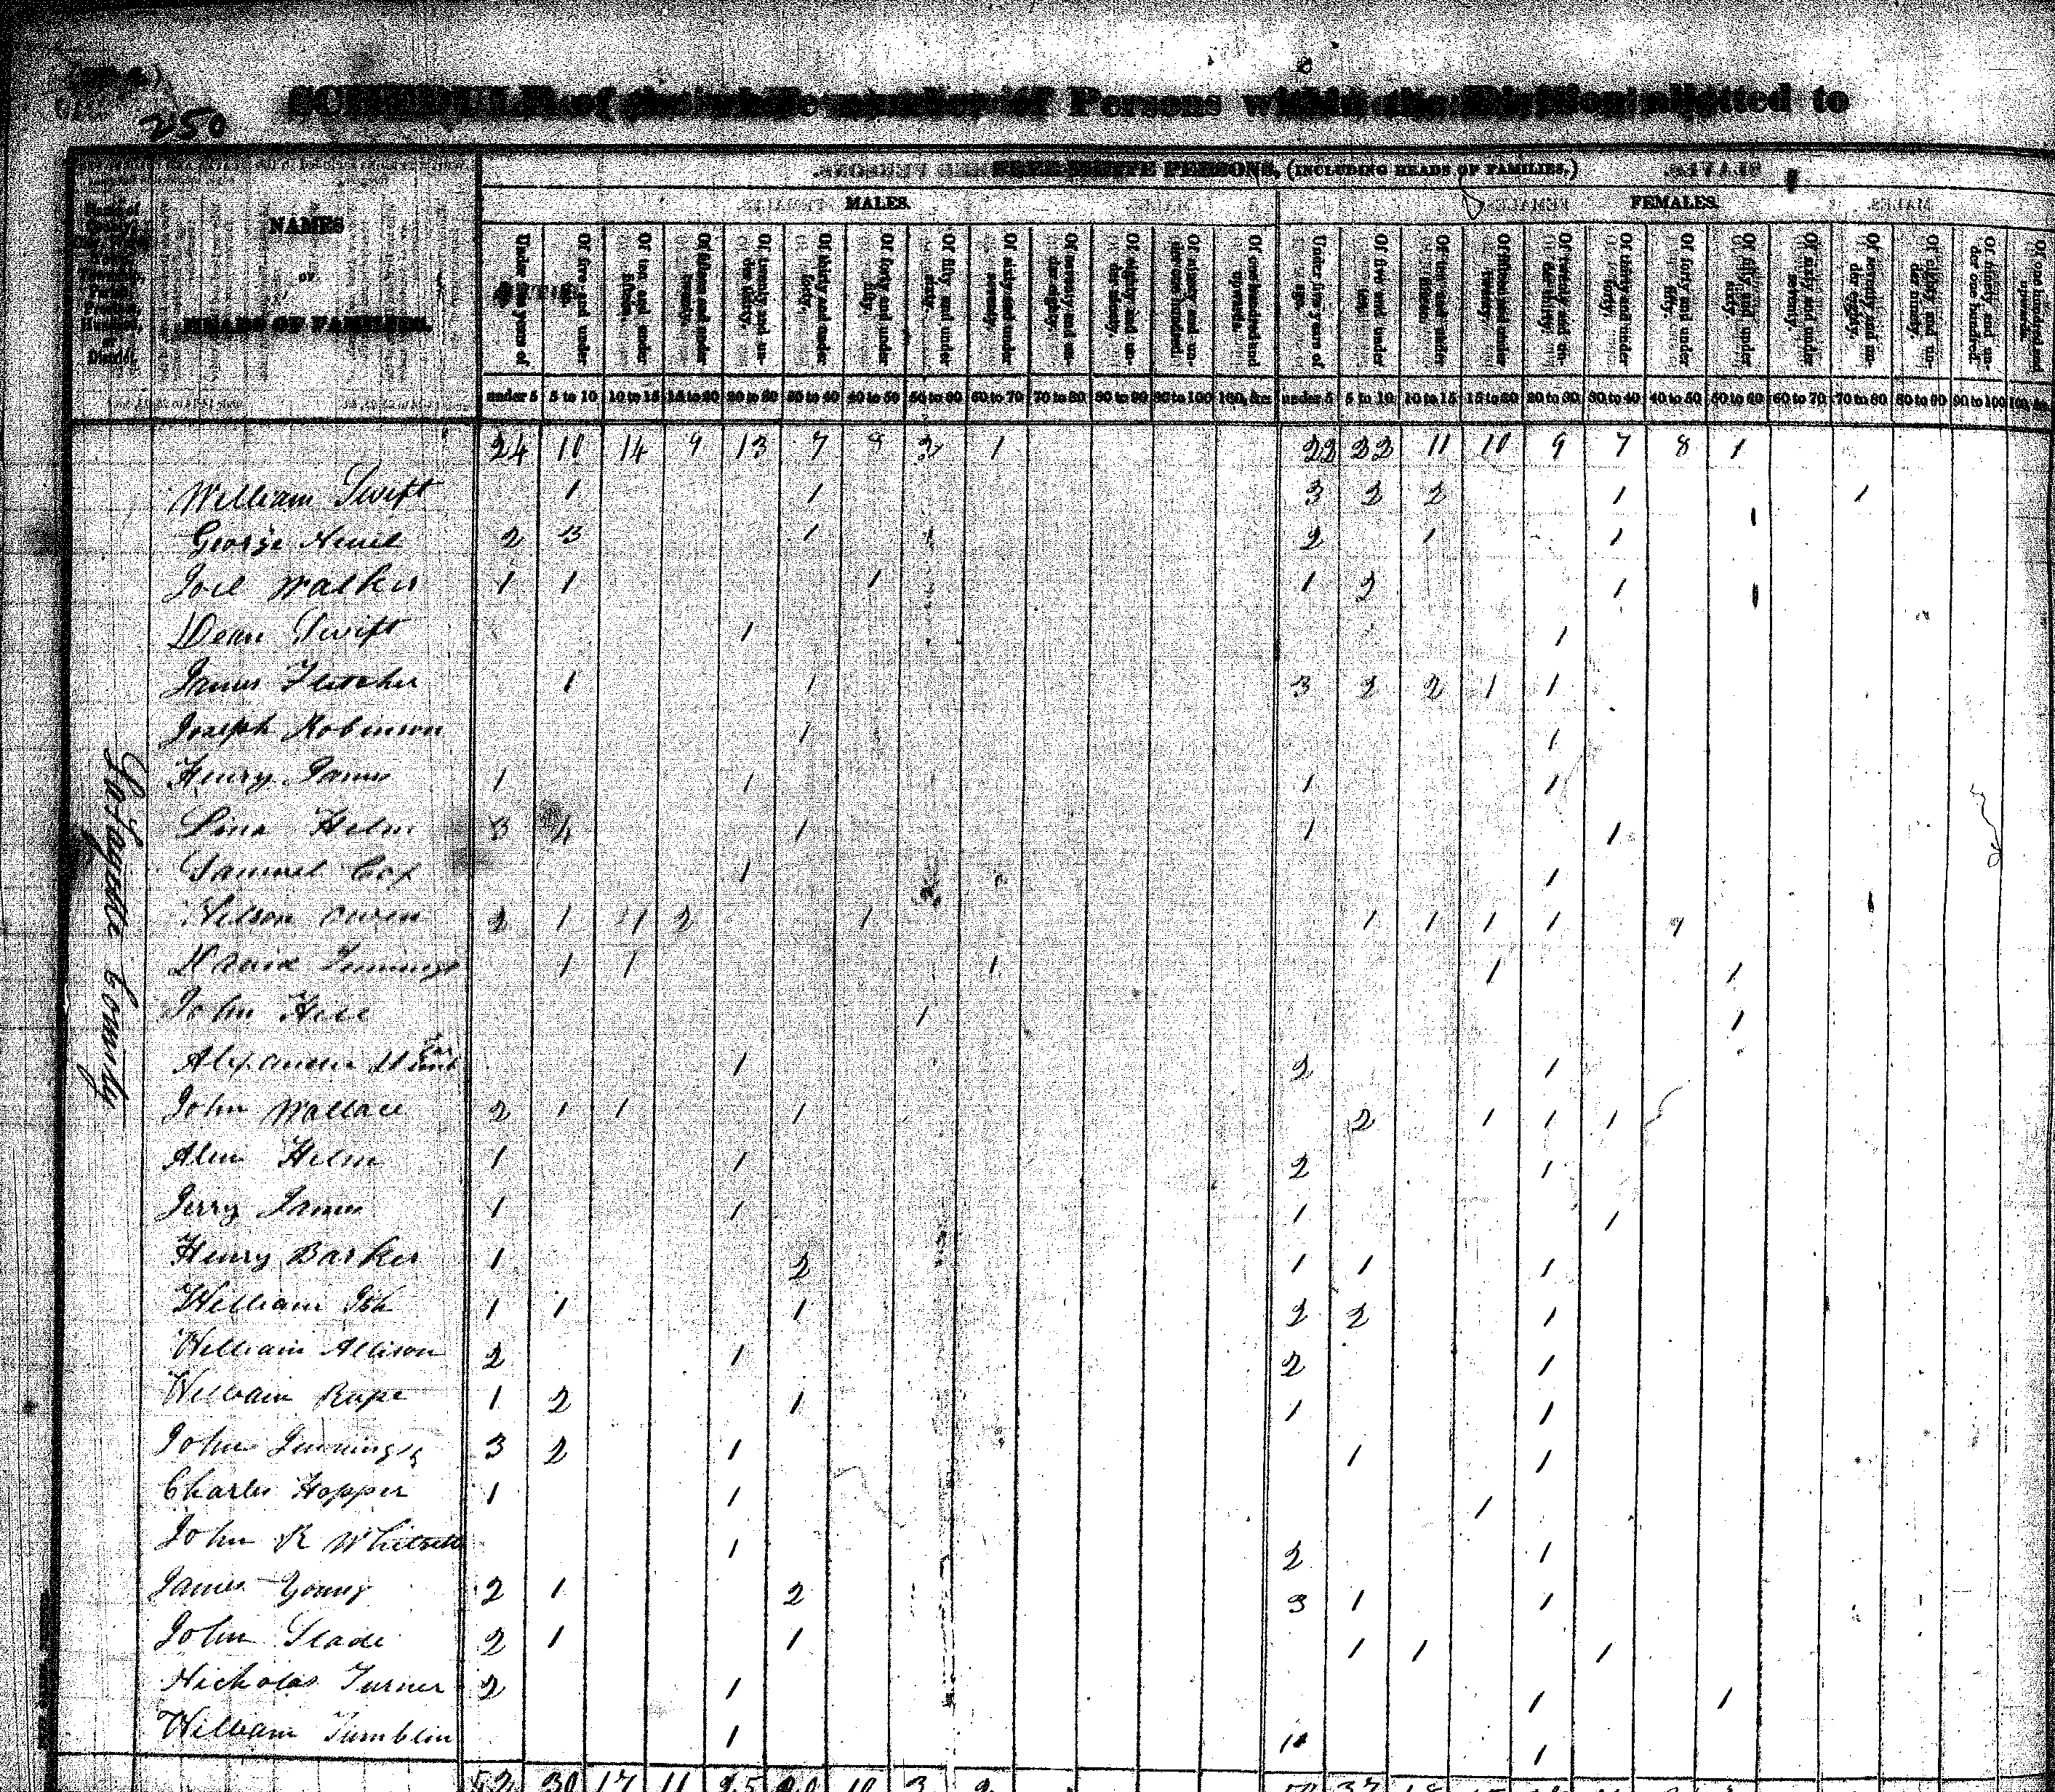 250
SCHEDULE of the whole number of Persons within the Division allotted to
FREE WHITE PERSONS, (INCLUDING HEADS OF FAMILIES.)
MALES. FEMALES.
NAMES
OF
HEADS OF FAMILIES.
Under five years of age, Of five and under ten, Of ten and under fifteen, Of fifteen and under twenty, Of twenty and under thirty, Of thirty and under forty, Of forty and under fifty, Of fifty and under sixty, Of sixty and under seventy, Of seventy and under eighty, Of eighty and under ninety, Of ninety and under one hundred, Of one hundred and upwards. Under five years of age, Of five and under ten, Of ten and under fifteen, Of fifteen and under twenty, Of twenty and under thirty, Of thirty and under forty, Of forty and under fifty, Of fifty and under sixty, Of sixty and under seventy, Of seventy and under eighty, Of eighty and under ninety, Of ninety and under one hundred, Of one hundred and upwards.
under 5 5 to 10 10 to 15 15 to 20 20 to 30 30 to 40 40 to 50 50 to 60 60 to 70 70 to 80 80 to 90 90 to 100 100, &c. under 5 5 to 10 10 to 15 15 to 20 20 to 30 30 to 40 40 to 50 50 to 60 60 to 70 70 to 80 80 to 90 90 to 100
LaFayette County
24 10 14 9 13 7 8 2 1 22 22 11 10 9 7 8 1
William Swift 1 1 3 2 2 1 1
George 2 3 1 2 1 1
Joel Walker 1 1 1 1 2 1
Dean Swift 1 1
James Fletcher 1 1 3 2 2 1 1
Joseph Robinson 1 1
Henry James 1 1 1 1
Helm 3 4 1 1 1
Samuel Cox 1 1
Nelson Owen 2 1 1 2 1 1 1 1 1 1
Jennings 1 1 1 1 1
John Hill 1 1
Alexander 1 2 1
John Wallace 2 1 1 1 2 1 1 1
Helm 1 1 2 1
Jerry James 1 1 1 1
Henry Barker 1 2 1 1 1
William Ish 1 1 1 2 2 1
William Allison 2 1 2 1
William Rupe 1 2 1 1 1
John Jennings 3 2 1 1 1
Charles Hopper 1 1 1
John R Whitsett 1 2 1
James Young 2 1 2 3 1 1
John Slade 2 1 1 1 1 1
Nicholas Turner 2 1 1 1
William Tumblin 1 1 1
52 30 17 11 25 10 3 2